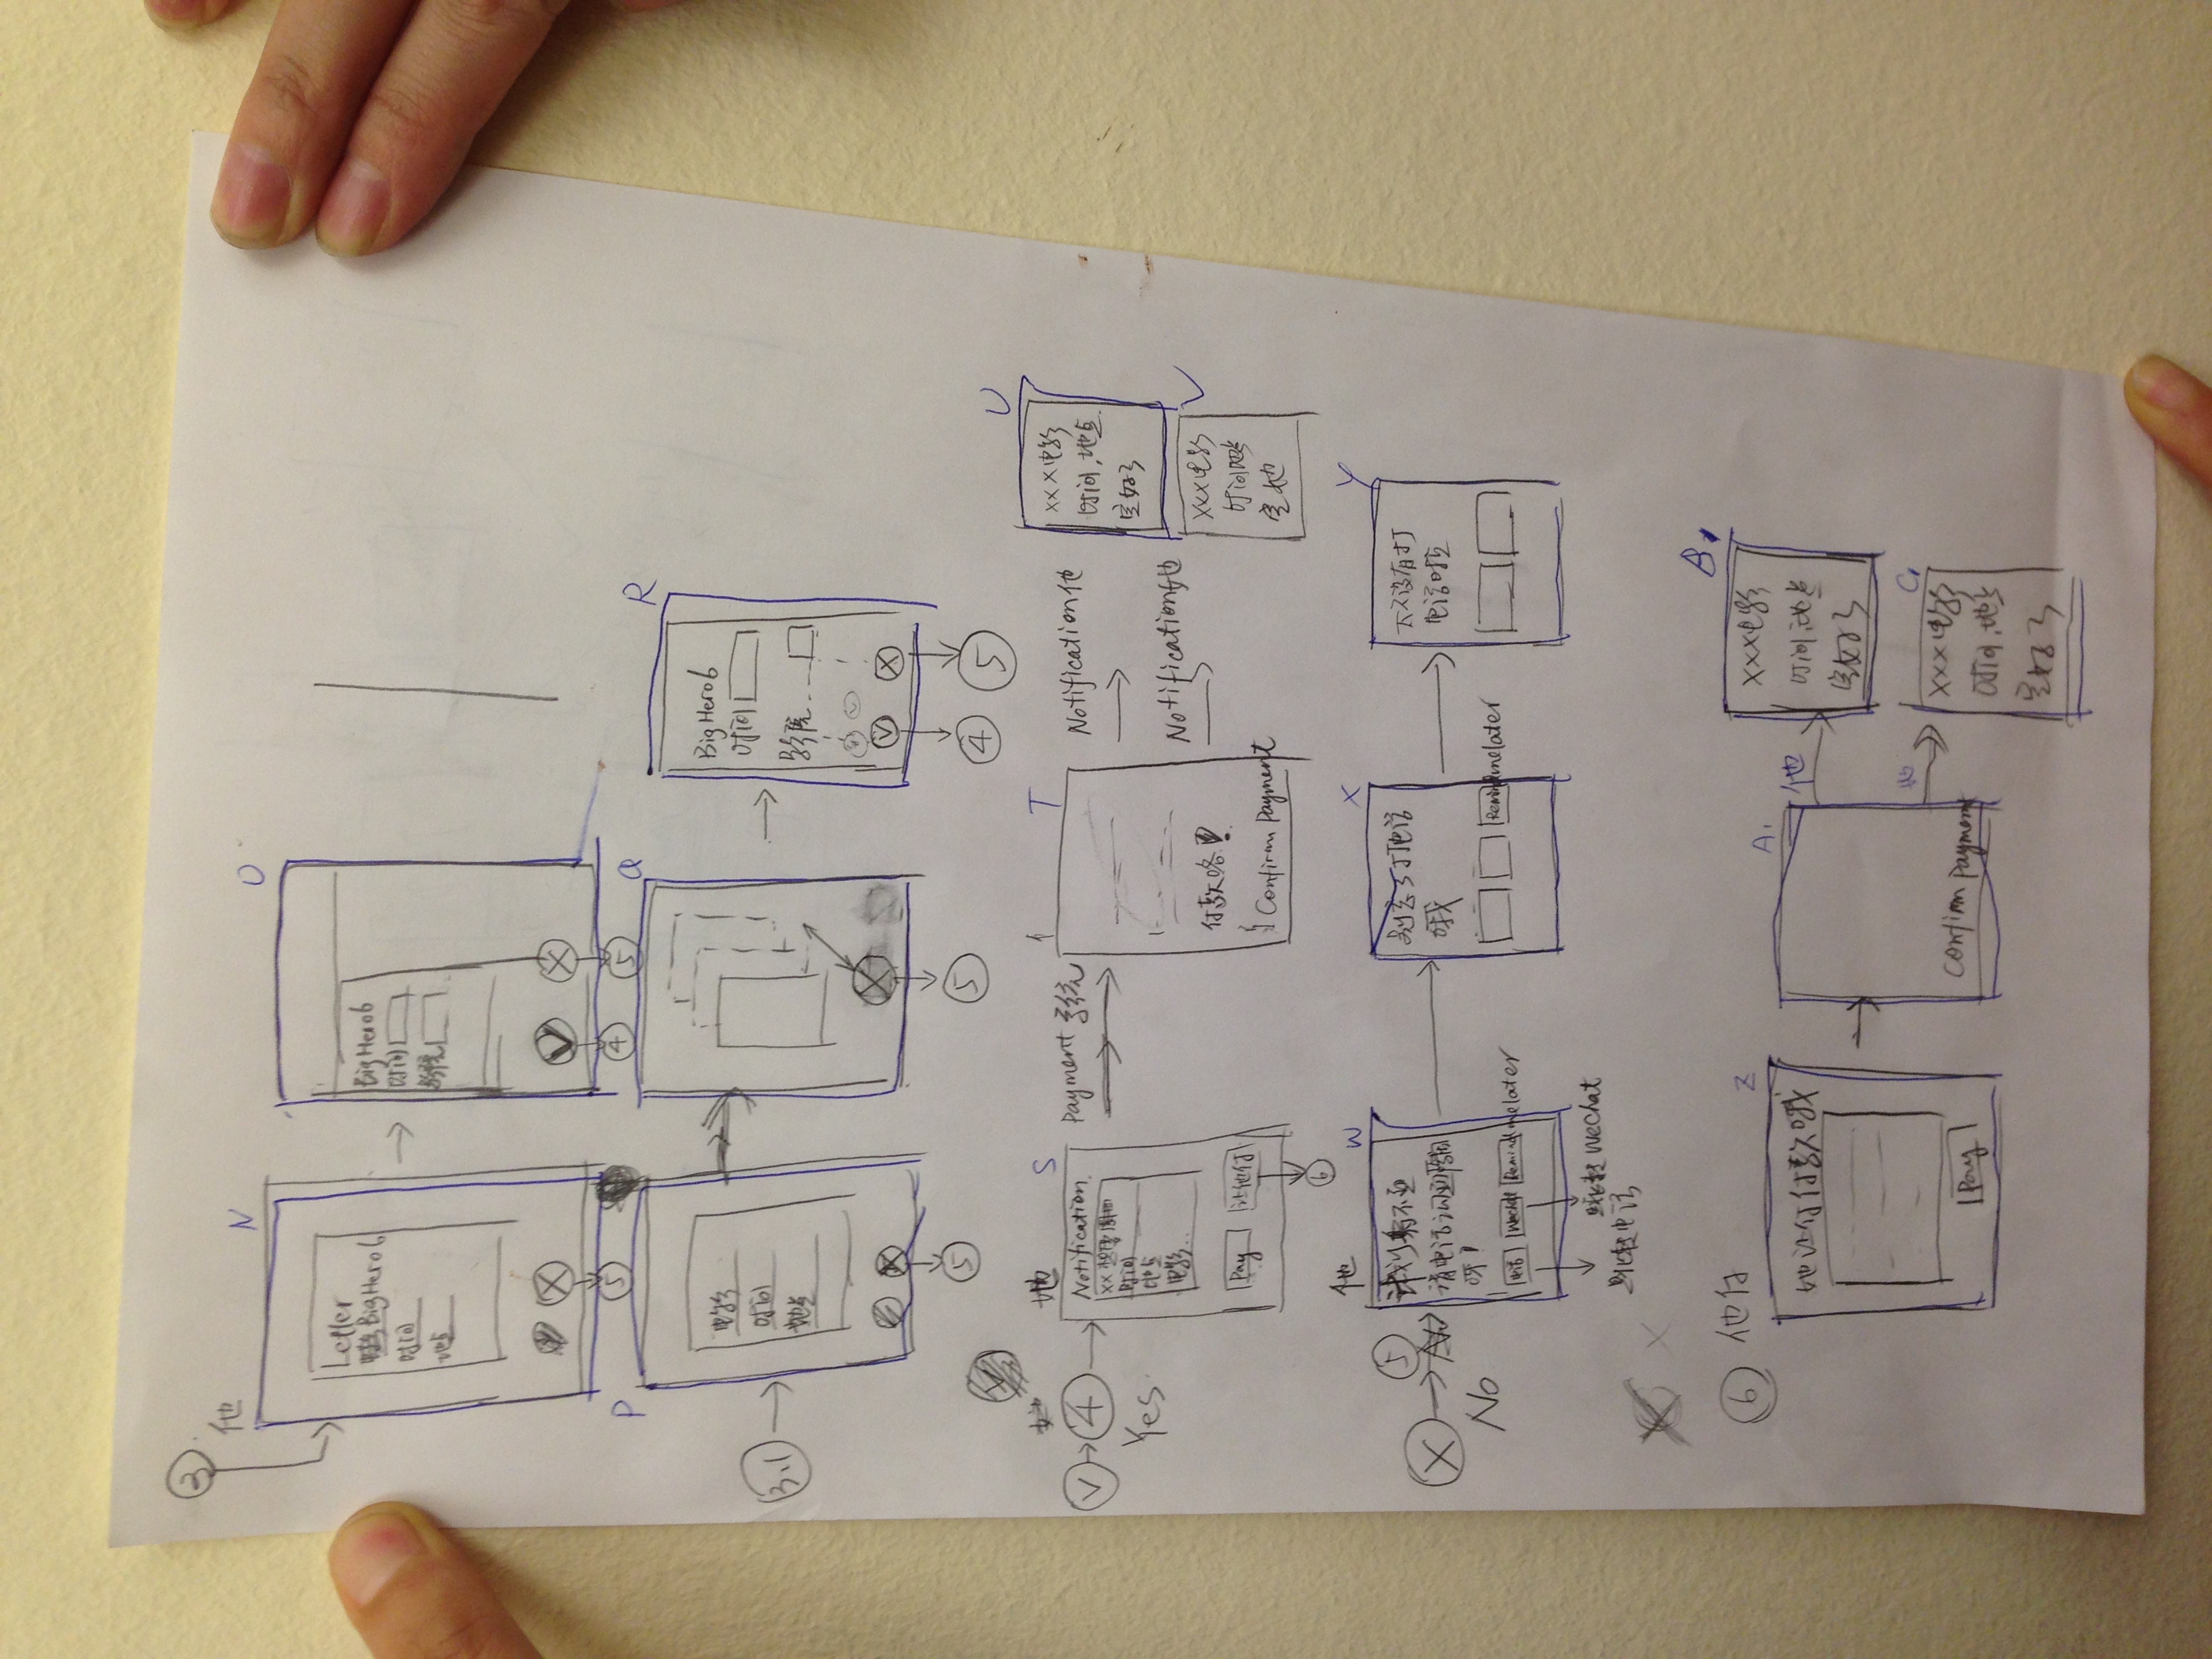 3
他
N
O
Letter
电影 BigHero6
时间
地点
X
5
BigHero6
时间
影院
V
X
4
5
P
Q
R
3.1
电影
时间
地点
X
5
X
5
BigHero6
时间
影院
V
X
4
5
V
4
Yes
她
S
Notification
XX
时间
地点
电影..
Pay
让他付
6
Payment 系统
T
付款咯!
Confirm Payment
Notification他
Notification她
U
XXX电影
时间,地点
定好了
V
XXX电影
时间地点
定
X
No
5
他
W
请电话
呀!
电话
Wechat
Remind me later
跳转电话
跳转 Wechat
X
别忘了打电话
哦
Remind me later
Y
又没有打
电话啦
6
他付
Z
她让付付款哦
Pay
A1
Confirm Payment
他
她
B1
XXX电影
时间,地点
定好了
C1
XXX电影
时间,地点
定好了